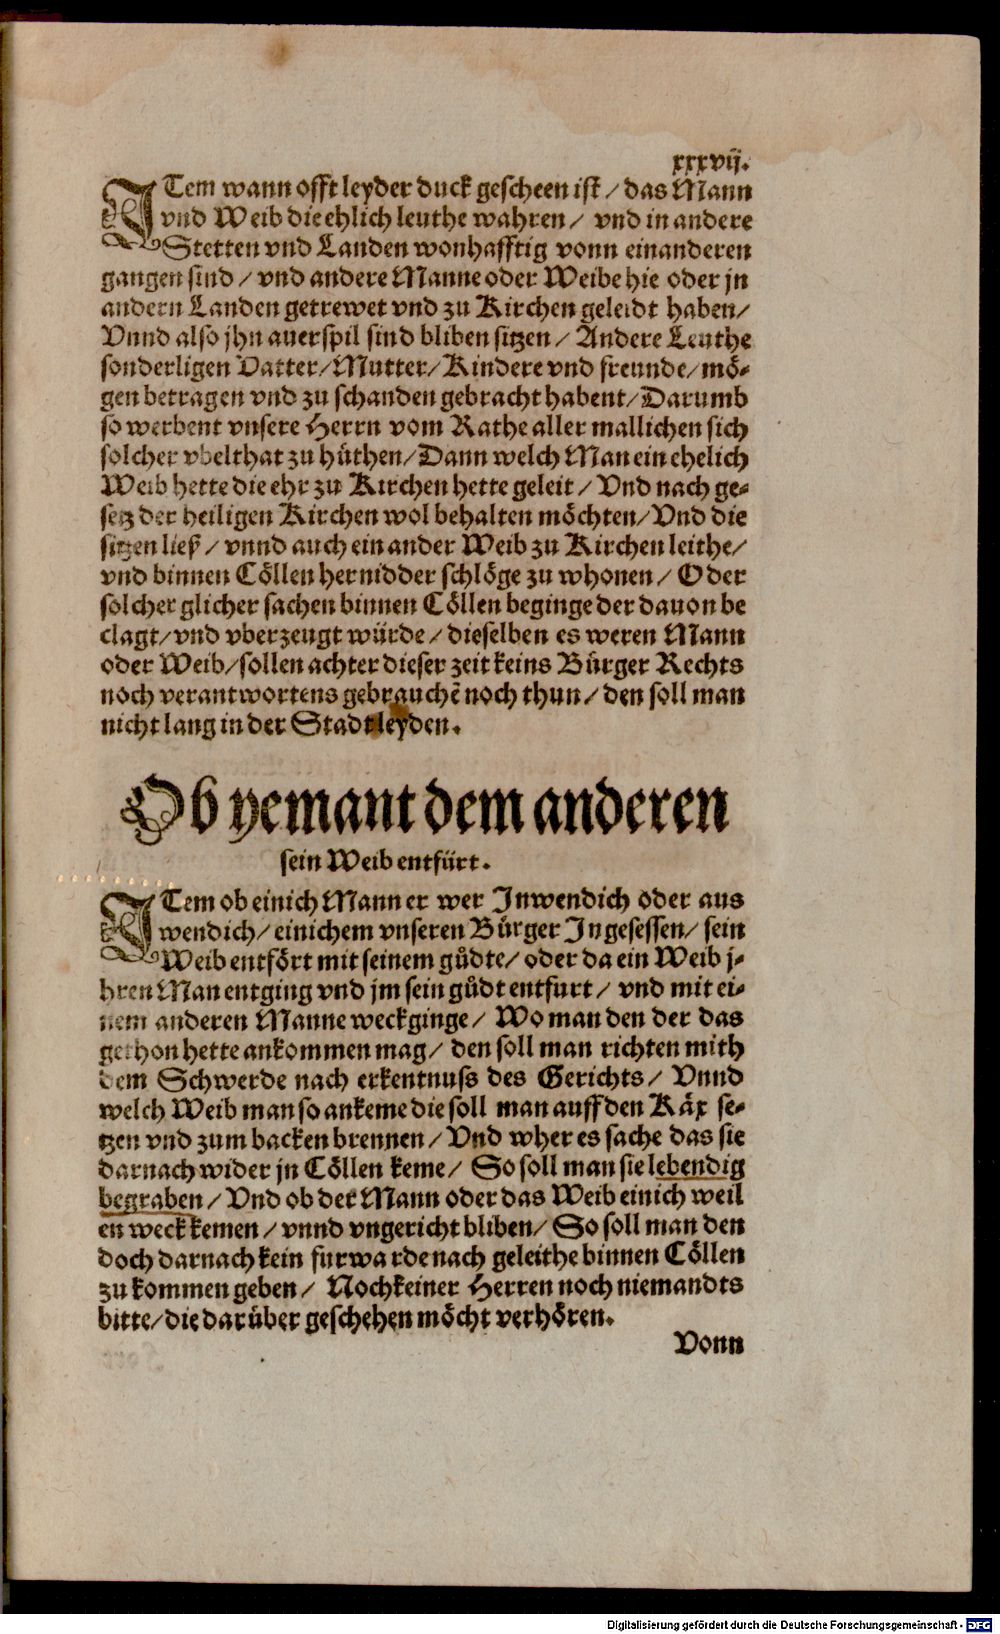 xxxvij.
ITem wann offt leyder duck gescheen ist / das Mann
vnd Weib die ehlich leuthe wahren / vnd in andere
Stetten vnd Landen wonhafftig vonn einanderen
gangen sind / vnd andere Manne oder Weibe hie oder jn
andern Landen getrewet vnd zu Kirchen geleidt haben /
Vnnd also jhn auerspil sind bliben sitzen / Andere Leuthe
sonderligen Vatter / Mutter / Kindere vnd freunde / mö-
gen betragen vnd zu schanden gebracht habent / Darumb
so werbent vnsere Herrn vom Rathe aller mallichen sich
solcher vbelthat zu hüthen / Dann welch Man ein ehelich
Weib hette die ehr zu Kirchen hette geleit / Vnd nach ge-
setz der heiligen Kirchen wol behalten möchten / Vnd die
sitzen ließ / vnnd auch ein ander Weib zu Kirchen leithe /
vnd binnen Cöllen hernidder schlöge zu whonen / Oder
solcher glicher sachen binnen Cöllen beginge der dauon be
clagt / vnd vberzeugt würde / dieselben es weren Mann
oder Weib / sollen achter dieser zeit keins Bürger Rechts
noch verantwortens gebrauchē noch thun / den soll man
nicht lang in der Stadt leyden.
Ob yemant dem anderen
sein Weib entfürt.
ITem ob einich Mann er wer Inwendich oder aus
wendich / einichem vnseren Bürger Ingesessen / sein
Weib entfört mit seinem gůdte / oder da ein Weib j-
hren Man entging vnd jm sein gůdt entfurt / vnd mit ei-
nem anderen Manne weckginge / Wo man den der das
gethon hette ankommen mag / den soll man richten mith
dem Schwerde nach erkentnuss des Gerichts / Vnnd
welch Weib man so ankeme die soll man auff den Käx se-
tzen vnd zum backen brennen / Vnd wher es sache das sie
darnach wider jn Cöllen keme / So soll man sie lebendig
begraben / Vnd ob der Mann oder das Weib einich weil
en weck kemen / vnnd vngericht bliben / So soll man den
doch darnach kein furwarde nach geleithe binnen Cöllen
zu kommen geben / Noch keiner Herren noch niemandts
bitte / die darüber geschehen möcht verhören.
Vonn
Digitalisierung gefördert durch die Deutsche Forschungsgemeinschaft - DFG